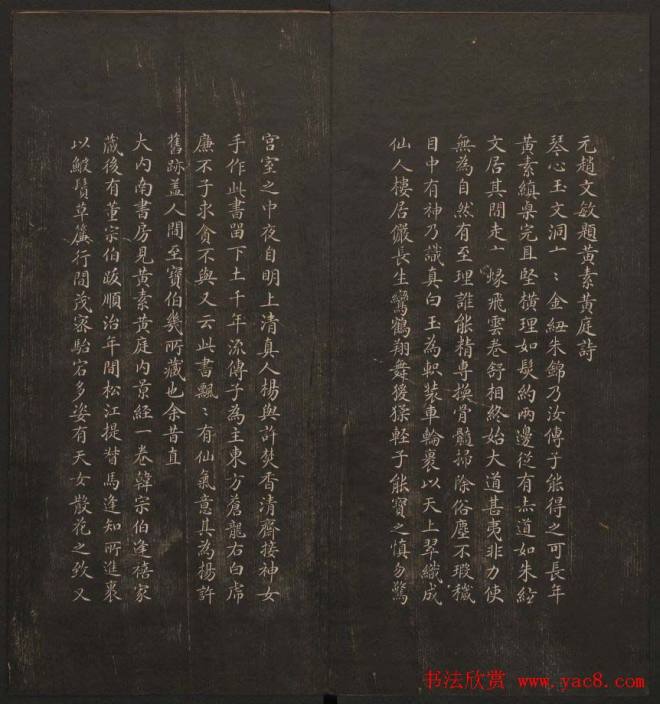 元趙文敏題黃素黃庭詩
琴心玉文洞亠〻金鈕朱錦乃汝傳子能得之可長年
黃素縝栗完且堅橫理如髮約兩邊從有赤道如朱絃
文居其間走亠煙飛雲卷舒相終始大道甚夷非力使
無為自然有至理誰能精專換骨髓掃除俗塵不瑕穢
目中有神乃識真白玉為軹裝車輪裹以天上翠織成
仙人樓居儼長生鸞鶴翔舞後猨輊子能寶之慎勿驚
宮室之中夜自明上清真人楊與許焚香清齊接神女
手作此書留下土千年流傳子為主東方蒼龍右白虎
廉不子求貪不與又云此書飄〻有仙氣意其為楊許
舊跡盖人間至寶伯幾所藏也余昔直
大內南書房見黃素黃庭內景經一卷韓宗伯逢禧家
藏後有董宗伯跋順治年間松江提督馬逢知所進裏
以鯫贉草䉬行間茂密駘宕多姿有天女散花之致又
书法欣赏 www.yac8.com